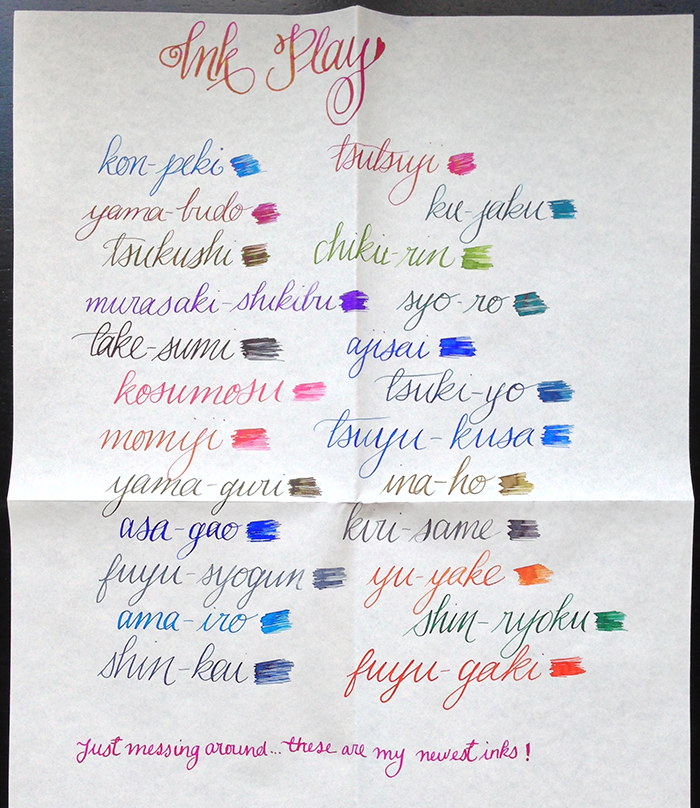 Ink Play
kon-peki tsutsuji
yama-budo ku-jaku
tsukushi chiku-rin
murasaki-shikibu syo-ro
take-sumi ajisai
kosumosu tsuki-yo
momiji tsuyu-kusa
yama-guri ina-ho
asa-gao kiri-same
fuyu-syogun yu-yake
ama-iro shin-ryoku
shin-kai fuyu-gaki
Just messing around... these are my newest inks!